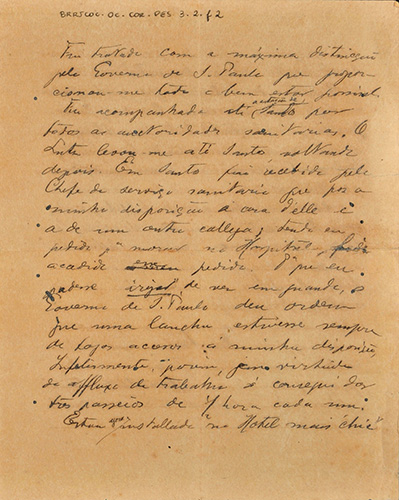 BRRJCOC. OC. COR. PES 3. 2. f. 2
Fui tratado com a máxima distincção
pelo Governo de S. Paulo que propor-
cionou me todo o bem estar possivel
Fui acompanhado até Santos por
todos as autoridades sanitarias. O
levou me até Santos, voltando
depois. Em Santos fui recebido pelo
Chefe do serviço sanitario que poz a
minha disposição a casa d'elle e
a de um outro collega; tendo eu
pedido p.a morar no Hospital,
acceder pedido. E que eu
de ser em quando, o
Governo de S. Paulo deu ordem
que uma lancha estivesse sempre
de fogos acesos á minha disposição,
Infelizmente, porém, em virtude
do affluxo de trabalho só consegui dar
tres passeios de 1 hora cada um.
Estou installado no Hotel mais "chic"